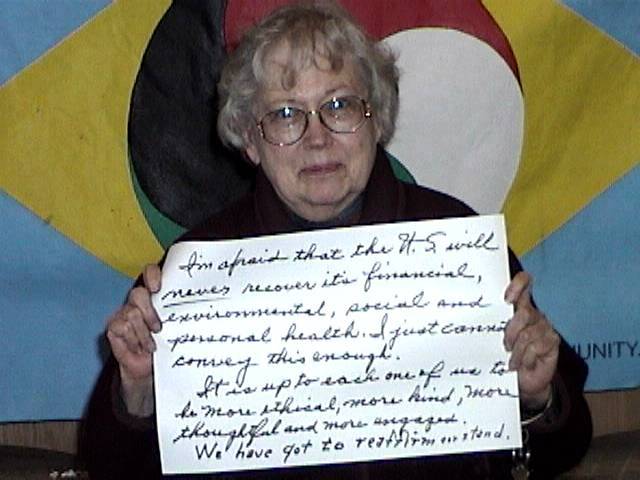 I'm afraid that the U.S. will
never recover it's financial,
environmental, social and
personal health. I just cannot
convey this enough.
It is up to each one of us to
be more ethical, more kind, more
thoughtful and more engaged.
We have got to reaffirm our stand.
MUNITY.